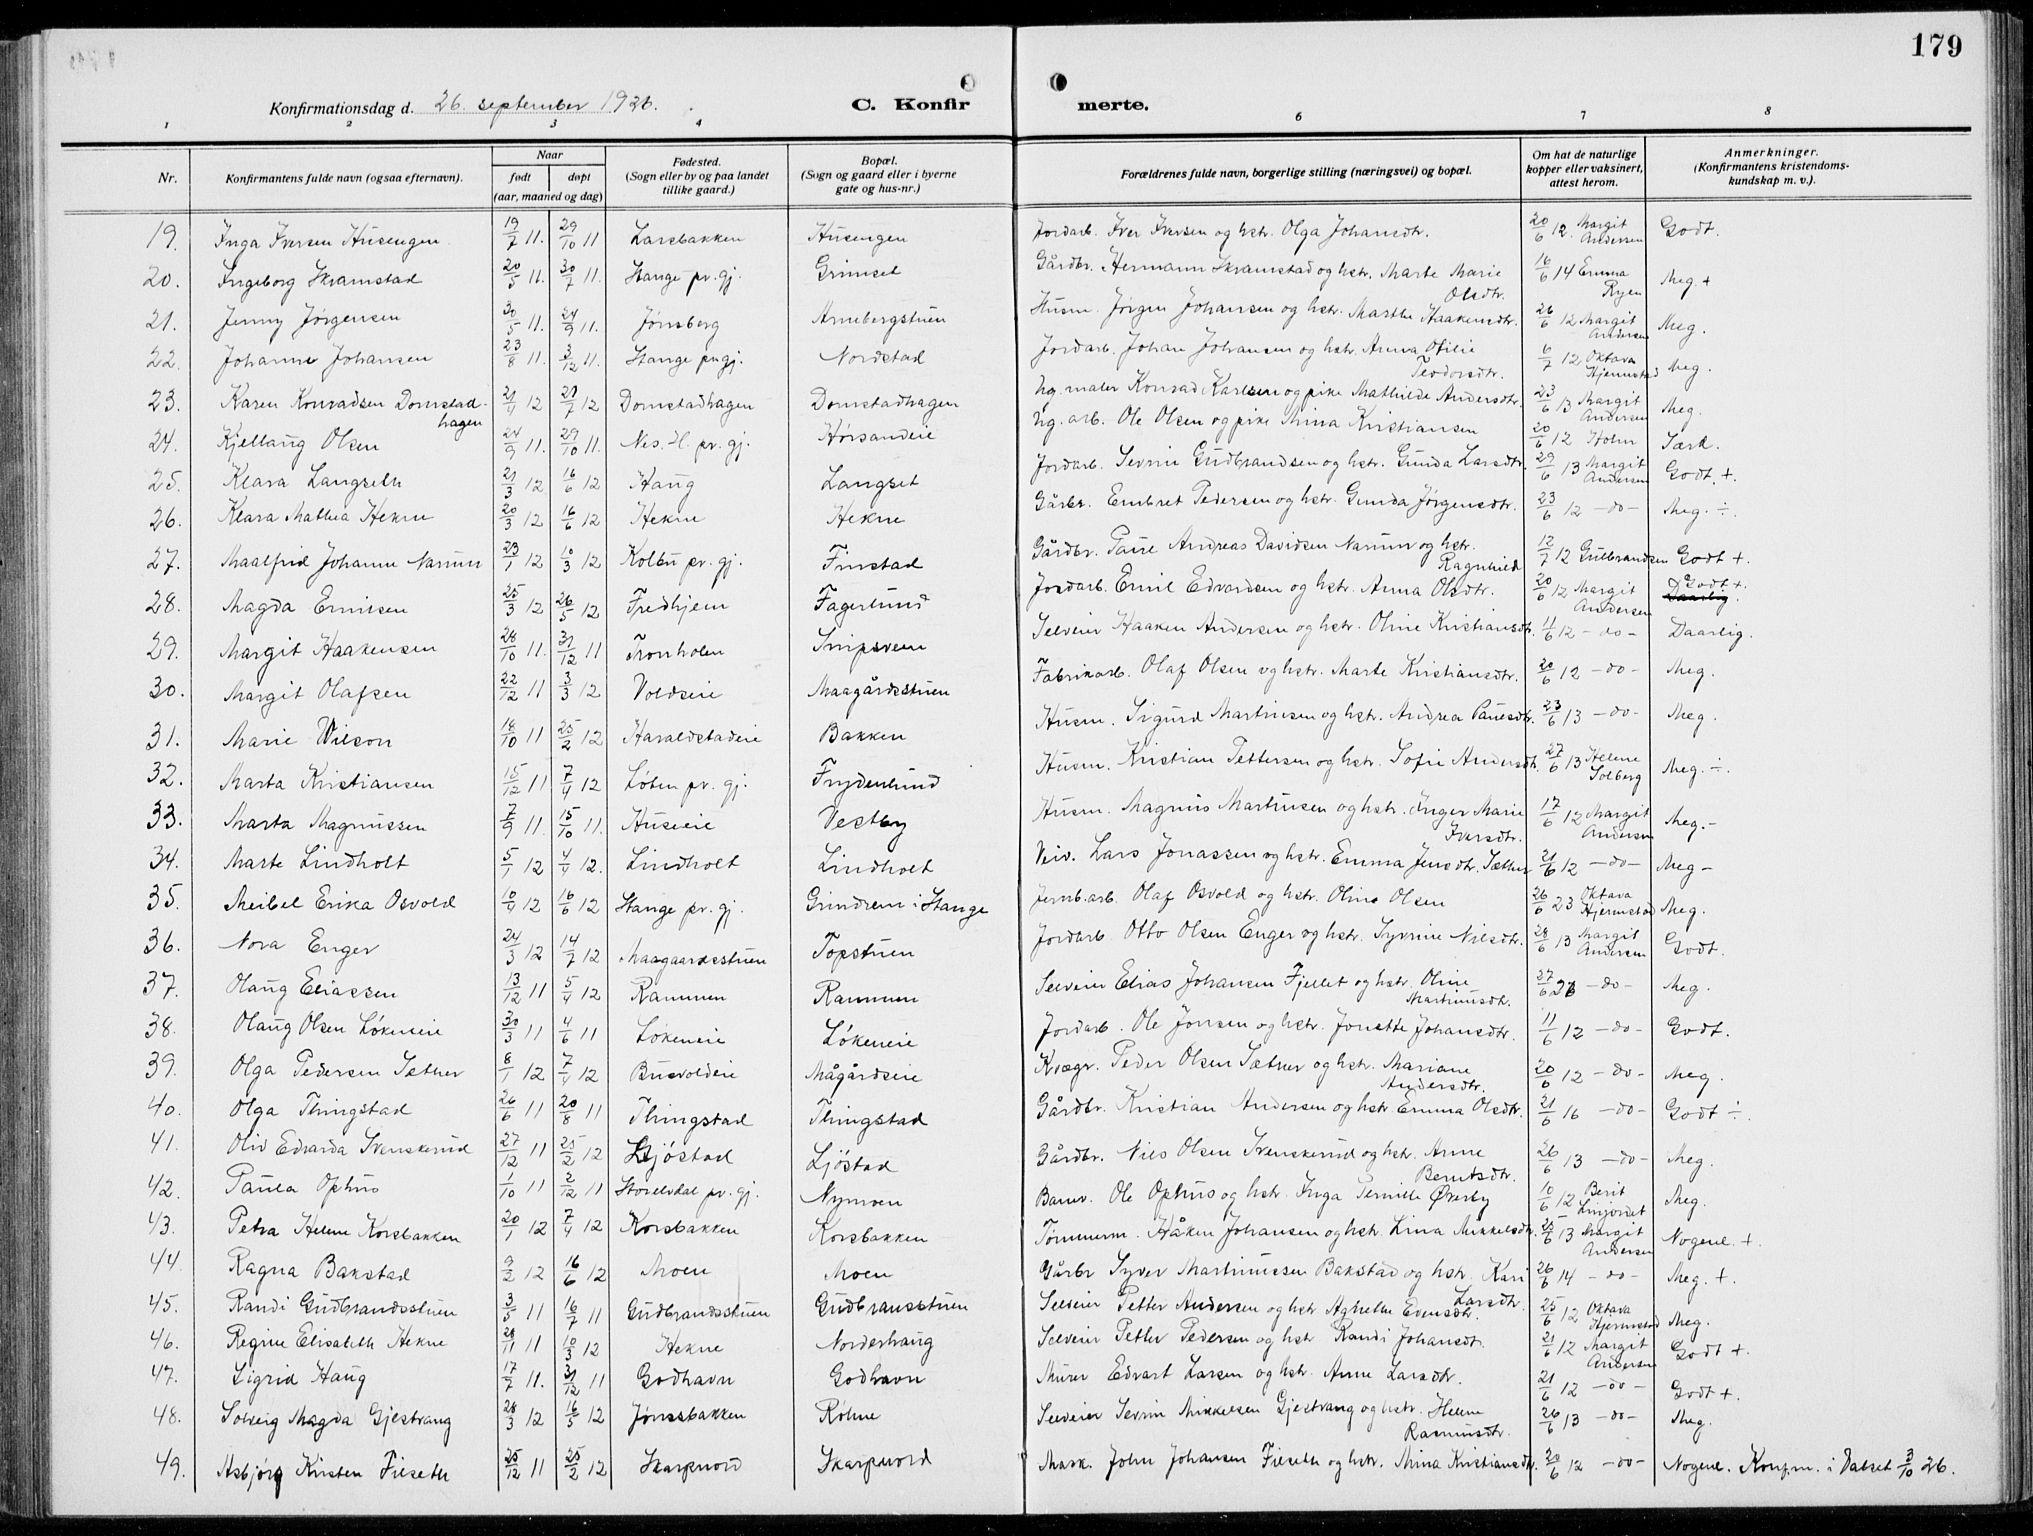 179
Konfirmationsdag d. 26. september 1926.
C. Konfirmerte.
1 2 3 4 6 7 8
Nr.
Konfirmantens fulde navn (ogsaa efternavn).
Naar
født døpt
(aar, maaned og dag)
Fødested.
(Sogn eller by og paa landet
tillike gaard.)
Bopæl.
(Sogn og gaard eller i byerne
gate og hus-nr.)
Forældrenes fulde navn, borgerlige stilling (næringsvei) og bopæl.
Om hat de naturlige
kopper eller vaksinert,
attest herom.
Anmerkninger.
(Konfirmantens kristendoms-
kundskap m. v.).
19. Inga Iversen Husengen 19/7 11. 29/10 11 Larsbakken Husengen Jordarb. Iver Iversen og hstr. Olga Johansdtr. 20/6 12. Margit Andersen Godt.
20. Ingeborg Skramstad 20/5 11. 30/7 11. Stange pr. gj. Grimset Gårdbr. Hermann Skramstad og hstr. Marte Marie Olsdtr. 16/6 14 Emma Ryen Meg +
21. Jenny Jørgensen 30/5 11. 24/9 11. Jønsberg Arnebergstuen Husm. Jørgen Johansen og hstr. Marthe Haakensdtr. 26/6 12 Margit Andersen Meg.
22. Johanne Johansen 23/8 11. 3/12 11. Stange pr. gj. Nordstad Jordarb. Johan Johansen og hstr. Anna Otilie Teodorsdtr. 6/7 12 Oktava Hjermstad Meg.
23. Karen Konradsen Domstadhagen 21/4 12 21/7 12 Domstadhagen Domstadhagen Ug. maler Konrad Karlsen og pike Mathilde Andersdtr. 23/6 13 Margit Andersen Meg.
24. Kjellaug Olsen 24/9 11. 29/10 11. Nes. H. pr. gj. Hørsandeie Ug. arb. Ole Olsen og pike Mina Kristiansen 20/6 12 Holm Særd.
25. Klara Langseth 21/3 12 16/6 12 Haug Langset Jordarb. Sevrin Gudbrandsen og hstr. Gunda Larsdtr. 29/6 13 Margit Andersen Godt. +.
26. Klara Mathea Hekne 20/3 12 16/6 12 Hekne Hekne Gårbr. Embret Pedersen og hstr. Gunda Jørgensdtr. 23/6 12 - do - Meg. ÷.
27. Maalfrid Johanne Narum 23/1 12 10/3 12 Kolbu pr. gj. Finstad Gårdbr. Paul Andreas Davidsen Narum og hstr. Ragnhild 12/7 12 Gulbrandsen Godt +
28. Magda Emilsen 25/3 12 26/5 12 Fredhjem Fagerlund Jordarb. Emil Edvardsen og hstr. Anna Olsdtr. 20/6 12 Margit Andersen Godt +. Daarlig.
29. Margit Haakensen 28/10 11. 31/12 11 Tronholen Snipsveen Selveier Haaken Andersen og hstr. Oline Kristiansdtr. 4/6 12 - do - Daarlig.
30. Margit Olafsen 22/12 11 3/3 12 Voldseie Maagårdsstuen Fabrikarb. Olaf Olsen og hstr. Marte Kristiansdtr. 20/6 12 - do - Meg.
31. Marie Wilson 18/10 11 25/2 12 Haraldstadeie Bakken Husm. Sigurd Martinsen og hstr. Andrea Paulsdtr. 23/6 13 - do - Meg.
32. Marta Kristiansen 15/12 11 7/4 12 Løten pr. gj. Frydenlund Husm. Kristian Pettersen og hstr. Sofie Andersdtr. 27/6 13 Helene Solberg Meg. ÷.
33. Marta Magnussen 7/9 11. 15/10 11. Huseeie Vestby Husm. Magnus Martinsen og hstr. Inger Marie Iversdtr. 17/6 12 Margit Andersen Meg. -
34. Marte Lindholt 5/1 12 4/4 12. Lindholt Lindholt Veiv. Lars Jonassen og hstr. Emma Jensdtr. Sæther 21/6 12 - do - Meg -
35. Meibel Erika Osvold 10/4 12 16/6 12 Stange pr. gj. Grindrem i Stange Jernb.arb. Olaf Osvold og hstr. Oline Olsen 26/6 23 Oktava Hjermstad Meg.
36. Nora Enger 24/3 12 14/7 12 Maagaardsstuen Topstuen Jordarb. Otto Olsen Enger og hstr. Syverine Nilsdtr. 28/6 13 Margit Andersen Godt.
37. Olaug Eliassen 13/12 11 5/4 12 Rammen Rammen Selveier Elias Johansen Fjellet og hstr. Oline Martinusdtr. 27/6 26 - do - Meg.
38. Olaug Olsen Løkeneie 30/3 11 4/6 11 Løkeneie Løkeneie Jordarb. Ole Jonsen og hstr. Jonette Johansdtr. 11/6 12 - do - Godt.
39. Olga Pedersen Sæther 8/1 12 7/4 12 Busvoldeie Mågårdseie Kvægr. Peder Olsen Sæther og hstr. Mariane Andersdtr. 20/6 12 - do - Meg.
40. Olga Thingstad 26/6 11 20/8 11 Thingstad Thingstad Gårdbr. Kristian Andersen og hstr Emma Olsdtr. 21/6 16 - do - Godt ÷.
41. Oliv Edvarda Svenskerud 27/12 11 25/2 12 Ljøstad Ljøstad Gårdbr. Nils Olsen Svenskerud og hstr. Anne Berntsdtr. 26/6 13 - do - Meg.
42. Paula Ophus 1/10 11 2/12 11 Storelvdal pr. gj. Nymoen Banev. Ole Ophus og hstr. Inga Pernille Øverby 10/6 12 Berit Linjordet Meg.
43. Petra Helene Korsbakken 20/1 12 7/4 12 Korsbakken Korsbakken Tømmerm. Håken Johansen og hstr. Lina Mikkelsdtr. 25/6 13 Margit Andersen Nogenl. +.
44. Ragna Bakstad 9/2 12 16/6 12 Moen Moen Gårbr Syver Martinussen Bakstad og hstr. Kari Larsdtr. 26/6 14 - do - Meg. +.
45. Randi Gudbrandsstuen 3/5 11 16/7 11 Gudbrandsstuen Gudbransstuen Selveier Petter Andersen og hstr Agnethe Evensdtr. 25/6 12 Oktava Hjermstad Meg.
46. Regine Elisabeth Hekne 28/11 11 10/3 12 Hekne Norderhaug Selveier Petter Pedersen og hstr Randi Johansdtr. 21/6 12 Margit Andersen Godt +.
47. Sigrid Haug 17/7 11. 31/12 11 Godhavn Godhavn Murer Edvart Larsen og hstr. Anne Larsdtr. 21/6 12 - do - Godt +.
48. Solveig Magda Gjestvang 28/3 12 16/5 12 Jønsbakken Rohne Selveier Sevrin Mikkelsen Gjestvang og hstr. Helene Rasmusdtr. 26/6 13 - do - Meg.
49. Asbjørg Kirsten Filseth 25/12 11 25/2 12 Skarpnord Skarpnord Mask. John Johansen Filseth og hstr. Mina Kristiansdtr. 20/6 12 - do - Nogenl. Konfirm. i Valset 3/10 26.